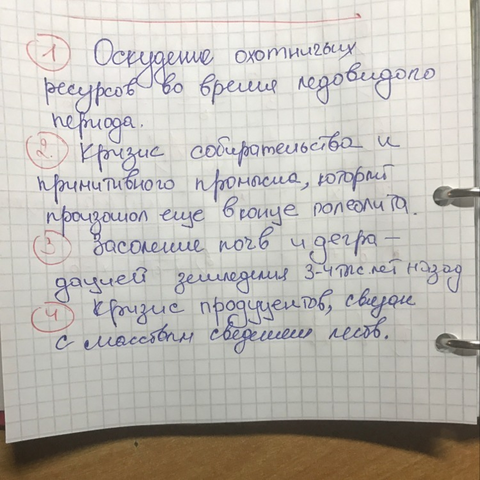 1 Оскудение охотничьих
ресурсов во время ледовидого
периода.
2. Кризис собирательства и
примитивного промысла, который
произошол еще в конце полеолита.
3 Засоление почв и дегра-
дацией земледелия 3-4 тыс лет назад
4 Кризис продуцентов, связан
с массовым сведением лесов.